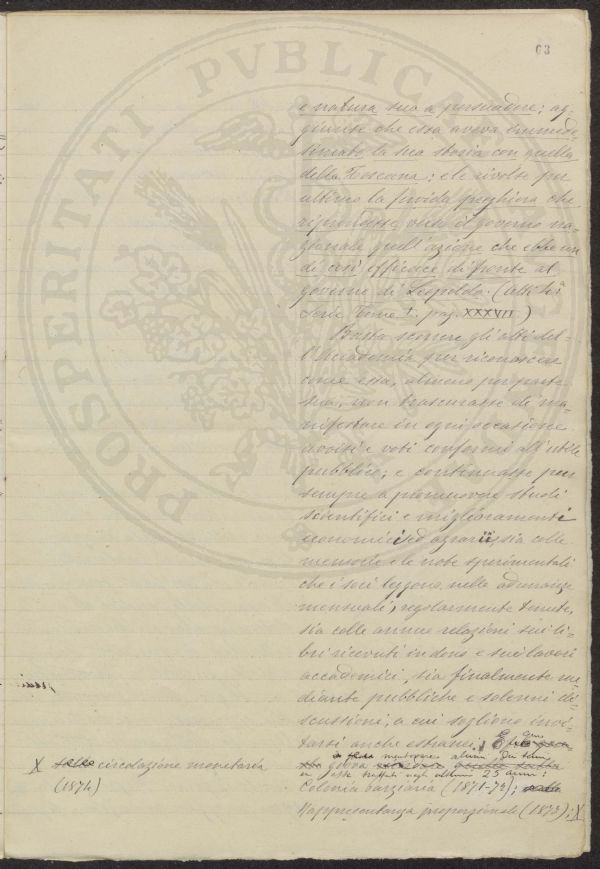 63
PROSPERITATI PVBLICAE
e natura sua a persuadere; ag-
giunse che essa aveva immede-
simato la sua storia con quella
della Toscana; e le rivolse per
ultimo la fervida preghiera che
riprendesse verso il governo na-
zionale quell'azione che ebbe un
dì così efficace di fronte al
governo di Leopoldo. (Atti
Serie Tomo I. pag. XXXVII.)
Basta scorrere gli atti del-
l'Accademia per riconoscere
come essa, almeno per parte
sua, non trascurasse di ma-
nifestare in ogni occasione
avvisi e voti conformi all'utile
pubblico; e continuasse pur
sempre a promuovere studi
scientifici e miglioramenti
economici ed agrarii, sia colle
memorie e le note sperimentali
che i soci leggono nelle adunanze
mensuali, regolarmente tenute,
sia colle annue relazioni sui li-
bri ricevuti in dono e sui lavori
accademici, sia finalmente me-
diante pubbliche e solenni di-
scussioni, a cui sogliono invi-
tarsi anche estranei.
giova mentovare alcuni dei temi
in esse trattati negli ultimi 25 anni:
Colonia parziaria (1871-72);
Rappresentanza proporzionale (1873); X
X circolazione monetaria
(1874)